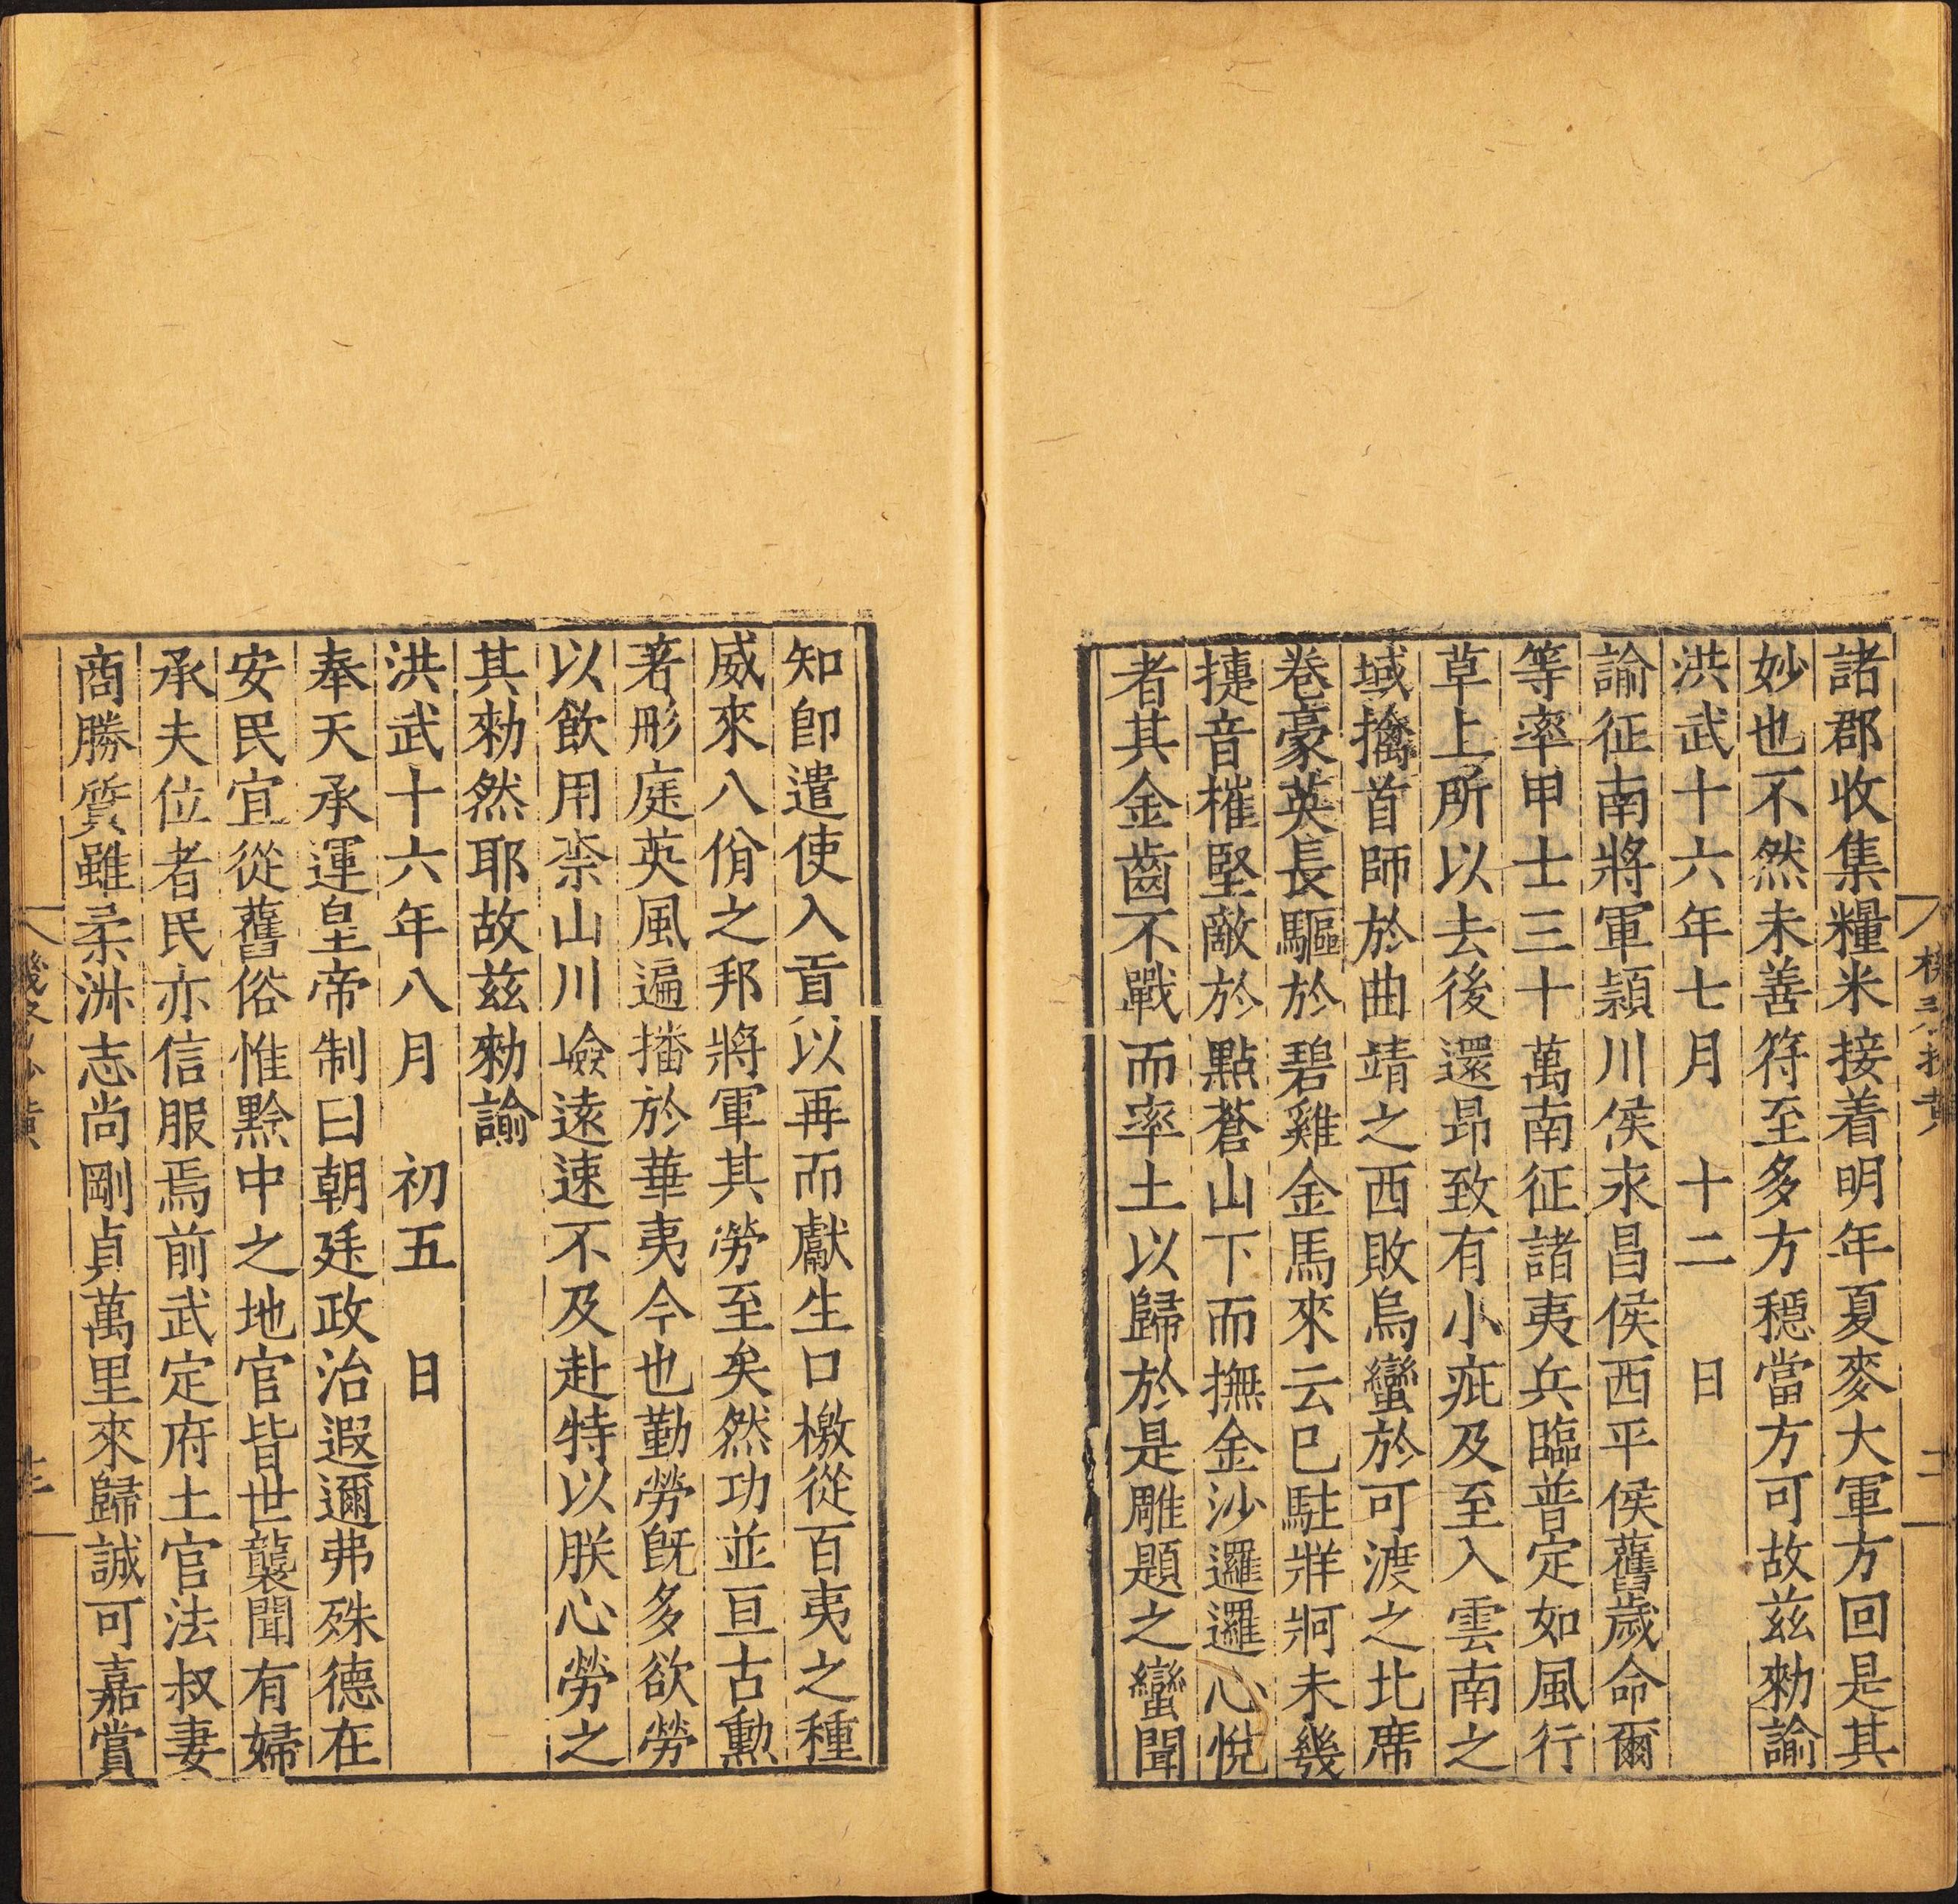 諸郡收集糧米接着明年夏麥大軍方回是其
妙也不然未善符至多方穩當方可故玆勑諭
洪武十六年七月 十二 日
諭征南將軍潁川侯永昌侯西平侯舊歲命爾
等率甲士三十萬南征諸夷兵臨普定如風行
草上所以去後還昻致有小疵及至入雲南之
域擒首師於曲靖之西敗烏蠻於可渡之北席
卷豪英長驅於碧雞金馬來云已駐牂牁未幾
㨗音摧堅敵於點蒼山下而撫金沙邏邏心悅
者其金齒不戰而率土以歸於是雕題之蠻聞
知卽遣使入貢以再而獻生口檄從百夷之種
威來八佾之邦將軍其勞至矣然功並亘古勲
著彤庭英風遍播於華夷今也勤勞旣多欲勞
以飲用柰山川嶮遠速不及赴特以朕心勞之
其勑然耶故玆勑諭
洪武十六年八月 初五 日
奉天承運皇帝制曰朝廷政治遐邇弗殊德在
安民宜從舊俗惟黔中之地官皆世襲聞有婦
承夫位者民亦信服焉前武定府土官法叔妻
商勝質雖柔淋志尚剛貞萬里來歸誠可嘉賞